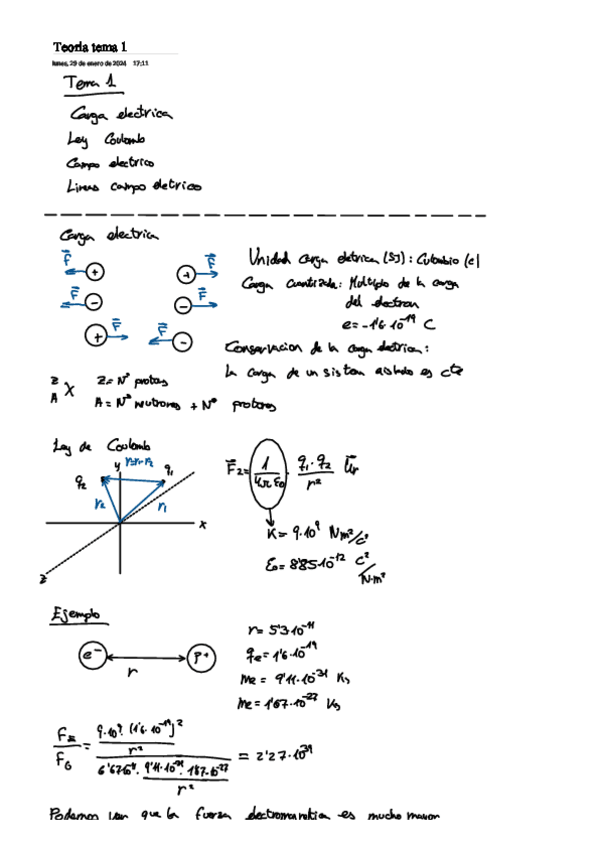 Teoría tema 1
lunes, 29 de enero de 2024 17:11
Tema 1
Carga electrica
Ley Coulomb
Campo electrico
Lineas campo eletrico
Carga electrica
F⃗ + + F⃗
F⃗ - - F⃗
+ F⃗ F⃗ -
Unidad carga eletrica (SI): Culombio (c)
Carga Cuantizada: Multiplo de la carga
del electron
e = -1'6·10⁻¹⁹ C
Conservacion de la carga electrica:
la carga de un sistem aislado es cte
Z
A X
Z = Nº protos
A = Nº neutrones + Nº protones
Ley de Coulomb
y r=r₁-r₂ q₁
q₂
r₂ r₁
x
z
F⃗₂ = 1/4πε₀ · q₁·q₂/r² u⃗r
K = 9·10⁹ Nm²/c²
ε₀ = 8'85·10⁻¹² c²/N·m²
Ejemplo
e⁻ r p⁺
r = 5'3·10⁻¹¹
qe = 1'6·10⁻¹⁹
me = 9'11·10⁻³¹ Kg
me = 1'67·10⁻²⁷ Kg
9·10⁹·(1'6·10⁻¹⁹)²
r²
= 2'27·10³⁹
r²
Podemos ver que la fuerza electromagnetica es mucho mayor